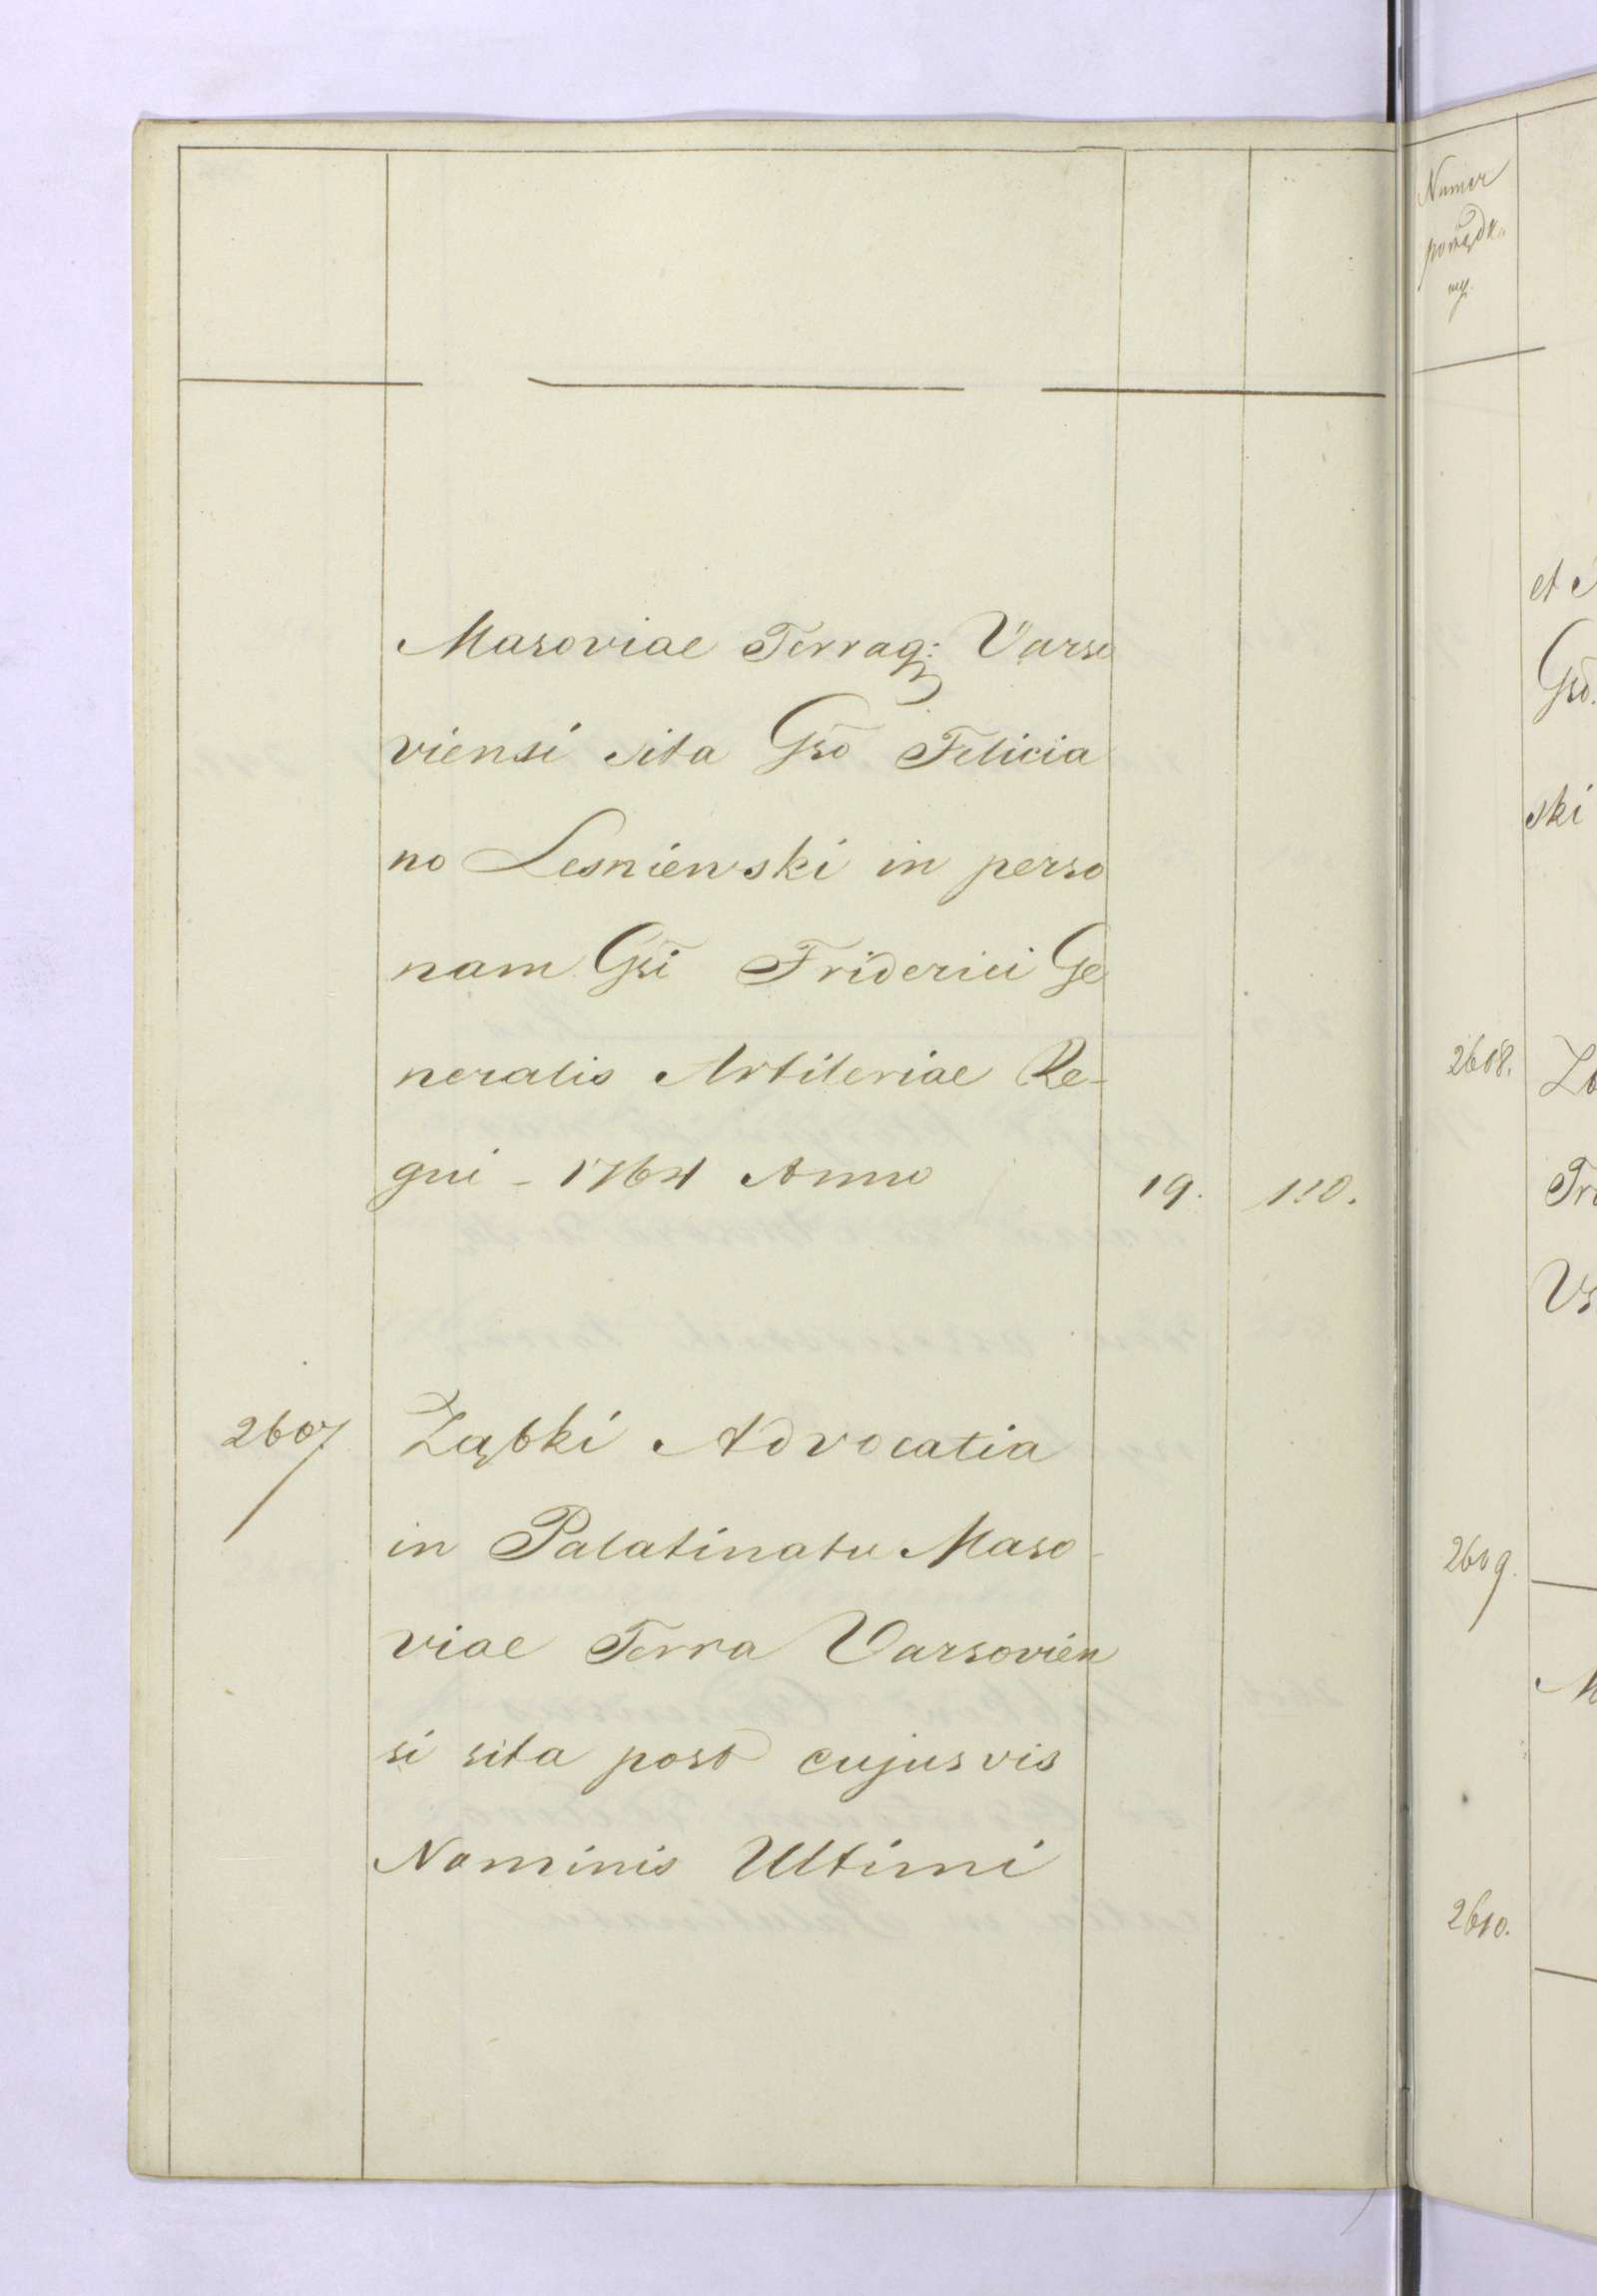 Masoviae Terraq: Varso
viensi sita Gso Felicia
no Lesniewski in perso
nam Gsi Friderici Ge
neralis Artileriae Re-
gni - 1764 Anno 19. 110.
2607. Ząbki Advocatia
in Palatinatu Maso-
viae Terra Varsovien
si sita post cujusvis
Nominis Ultimi
Numer
porządko
wy.
et
Gso.
ski
2608. Zą
Tr
2609.
2610.